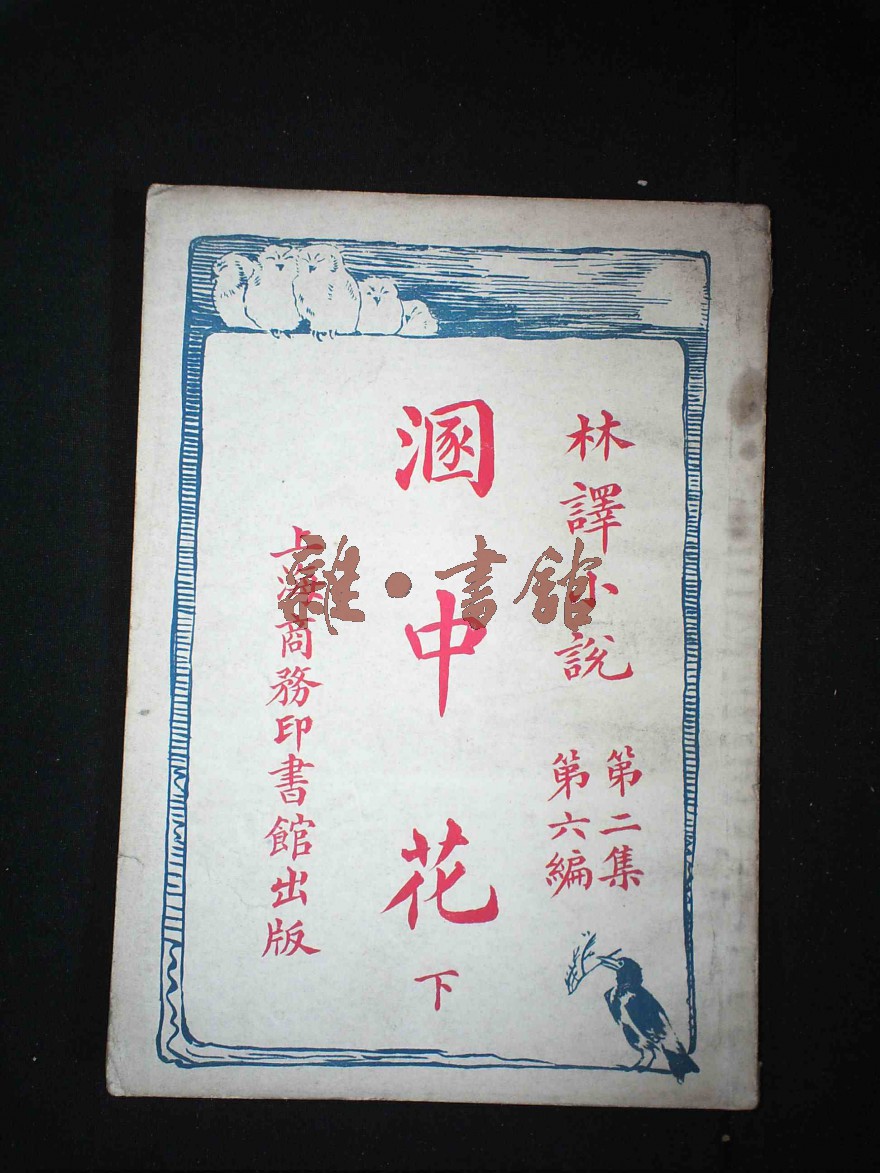 林譯小說
第二集
第六編
溷中花 下
上海商務印書館出版
雜·書館